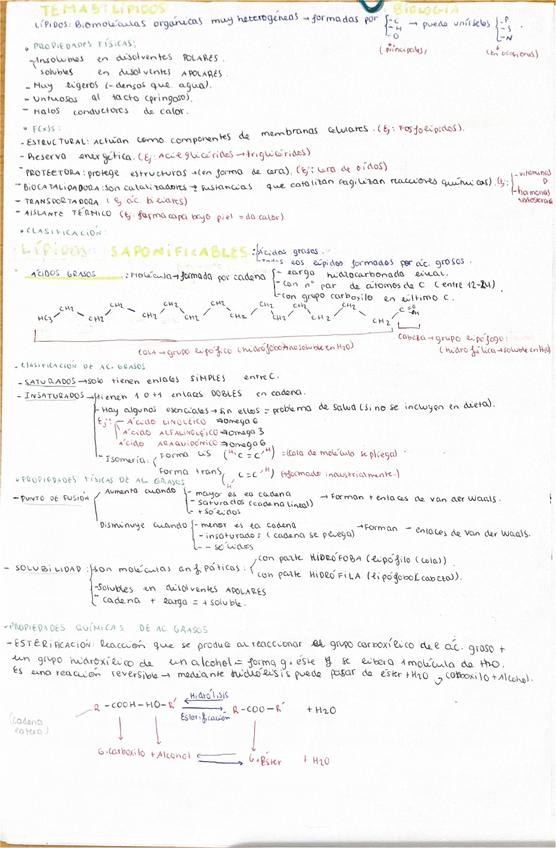 TEMA 5: LÍPIDOS BIOLOGÍA
LÍPIDOS: Biomoléculas orgánicas muy heterogéneas → formadas por -C -H -O (principales) → puede unírseles -P -S -N (en ocasiones)
• PROPIEDADES FÍSICAS:
- Insolubles en disolventes POLARES.
solubles en disolventes APOLARES.
- Muy ligeros (- densos que agua).
- Untuosos al tacto (pringosos).
- Malos conductores de calor.
• FCNSS:
- ESTRUCTURAL: actúan como componentes de membranas celulares. (Ej: Fosfolípidos).
- Reserva energética. (Ej: Acilglicéridos → triglicéridos)
- PROTECTORA: protege estructuras → (en forma de cera). (Ej: cera de oídos)
- BIOCATALIZADORA: son catalizadores → sustancias que catalizan (agilizan reacciones químicas). Ej: - vitaminas D - hormonas
- TRANSPORTADORA (Ej: ác. biliares)
- AISLANTE TÉRMICO (Ej: forma capa bajo piel = da calor)
• CLASIFICACIÓN:
LÍPIDOS SAPONIFICABLES: ácidos grasos.
Todos los lípidos formados por ác. grasos.
• ÁCIDOS GRASOS: Molécula → formada por cadena - larga hidrocarbonada lineal.
- con nº par de átomos de C (entre 12-24)
- con grupo carboxilo en último C.
CH2 CH2 CH2 CH2 CH2 CH2
HC3 CH2 CH2 CH2 CH2 CH2 CH2 C
COLA → grupo lipófilo (hidrófobo → no soluble en H2O)
CABEZA → grupo lipófogo (hidrófila → soluble en H2O)
- CLASIFICACIÓN DE AC. GRASOS
- SATURADOS → solo tienen enlaces SIMPLES entre C.
- INSATURADOS → tienen 1 o +1 enlaces DOBLES en cadena.
- Hay algunos esenciales → sin ellos = problema de salud (si no se incluyen en dieta).
Ej: - ÁCIDO LINOLEICO → omega 6
ÁCIDO ALFALINOLEICO → omega 3
ÁCIDO ARAQUIDÓNICO → omega 6
- Isomería: Forma cis (H C = C H) = (cola de molécula se pliega).
Forma trans (C = C) (formado industrialmente.)
• PROPIEDADES FÍSICAS DE AC. GRASOS
- PUNTO DE FUSIÓN Aumenta cuando - mayor es la cadena
- saturados (cadena lineal) → Forman + enlaces de van der Waals.
- + sólidos
Disminuye cuando - menor es la cadena
- insaturados (cadena se pliega) → Forman - enlaces de Van der Waals.
- - sólidos
- SOLUBILIDAD: - son moléculas anfipáticas: con parte HIDRÓFOBA (lipófilo (cola)).
con parte HIDRÓFILA (lipófobo (cabeza)).
- Solubles en disolventes APOLARES
- cadena + larga = + soluble.
• PROPIEDADES QUÍMICAS DE AC GRASOS
- ESTERIFICACIÓN: Reacción que se produce al reaccionar el grupo carboxílico del ác. graso +
un grupo hidroxílico de un alcohol = forma g. éste y se libera 1 molécula de H2O.
Es una reacción reversible → mediante hidrólisis puede pasar de éster + H2O a carboxilo + alcohol.
R - COOH - HO - R' Hidrólisis Esterificación R - COO - R' + H2O
(cadena entera)
G. Carboxilo + Alcohol G. Éster + H2O